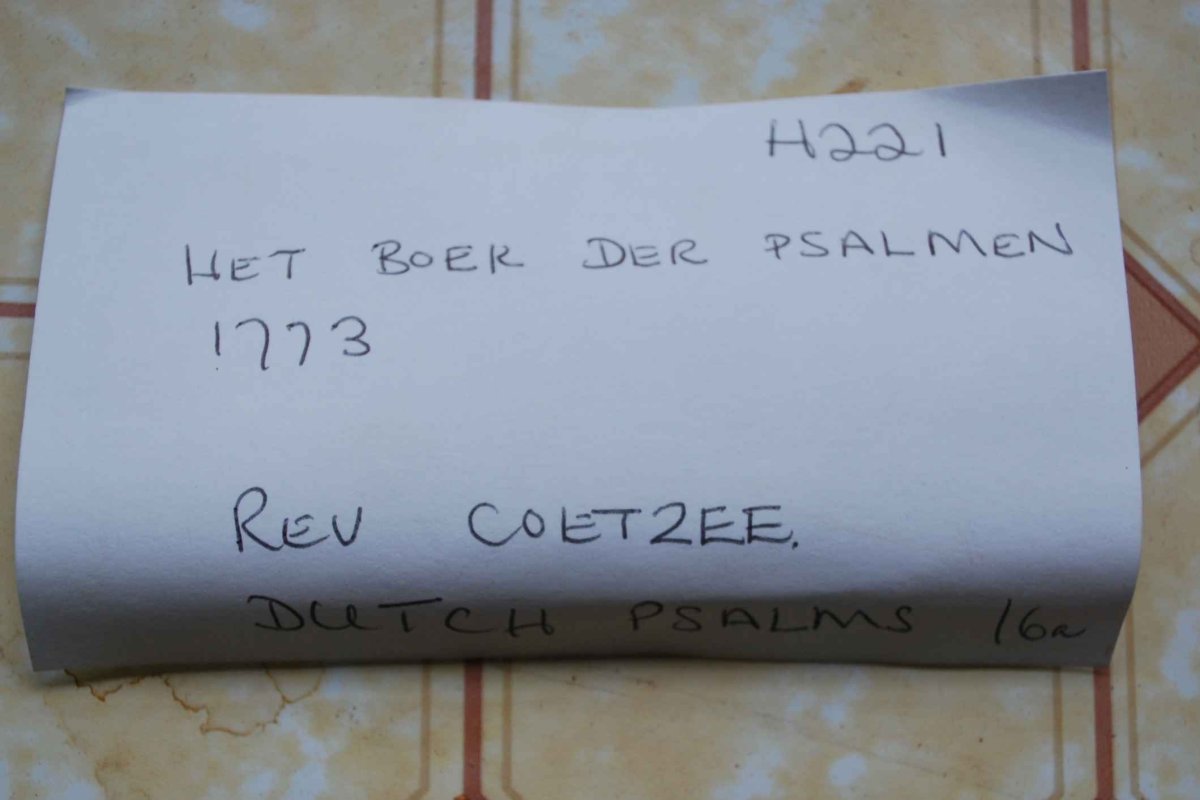 H221
HET BOEK DER PSALMEN
1773
REV COETZEE.
DUTCH PSALMS 16a